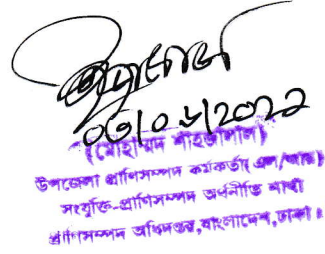 ০৩/০৮/২০২২
(মোহাম্মদ শাহজালাল)
উপজেলা প্রাণিসম্পদ কর্মকর্তা( এল/আর)
সংযুক্তি-প্রাণিসম্পদ অর্থনীতি শাখা
প্রাণিসম্পদ অধিদপ্তর,বাংলাদেশ,ঢাকা।